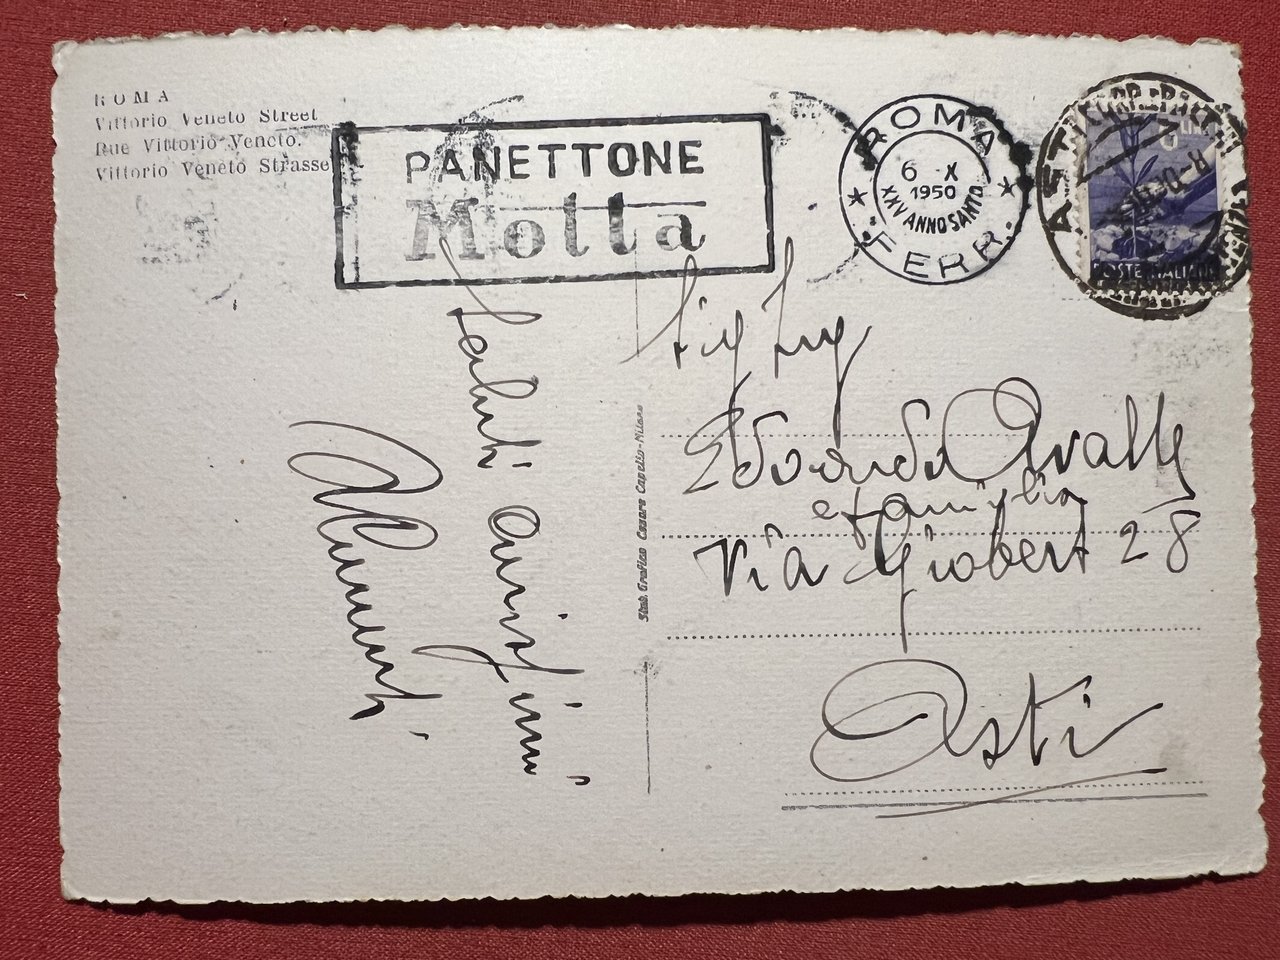 ROMA
Vittorio Veneto Street
Rue Vittorio Veneto.
Vittorio Veneto Strasse
PANETTONE
Motta
ROMA
6 X
1950
XXV ANNO SANTO
FERR.
ASTI
POSTE ITALIANE
Saluti
Stab. Grafico Cesare Capello - Milano
Sig
Edoardo Avalle
e famiglia
Via Giobert 28
Asti